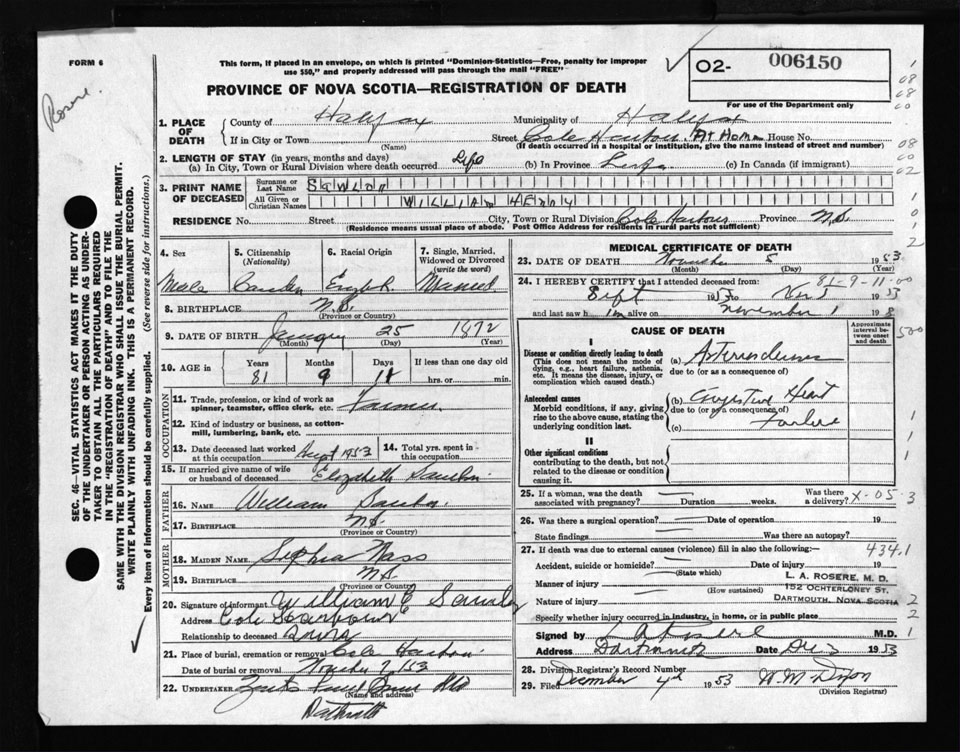 FORM 6
This form, if placed in an envelope, on which is printed "Dominion-Statistics—Free, penalty for improper use $50," and properly addressed will pass through the mail "FREE"
O2- 006150
For use of the Department only
PROVINCE OF NOVA SCOTIA—REGISTRATION OF DEATH
Rosere.
SEC. 46—VITAL STATISTICS ACT MAKES IT THE DUTY
OF THE UNDERTAKER OR PERSON ACTING AS UNDER-
TAKER TO OBTAIN ALL THE PARTICULARS REQUIRED
IN THE "REGISTRATION OF DEATH" AND TO FILE THE
SAME WITH THE DIVISION REGISTRAR WHO SHALL ISSUE THE BURIAL PERMIT.
WRITE PLAINLY WITH UNFADING INK. THIS IS A PERMANENT RECORD.
Every item of information should be carefully supplied. (See reverse side for instructions.)
1. PLACE OF DEATH
County of Halifax Municipality of Halifax
If in City or Town (Name) Street Cole Harbour At Home House No.
(If death occurred in a hospital or institution, give the name instead of street and number)
2. LENGTH OF STAY (in years, months and days)
(a) In City, Town or Rural Division where death occurred Life (b) In Province Life (c) In Canada (if immigrant)
3. PRINT NAME OF DECEASED
Surname or Last Name
All Given or Christian Names WILLIAM HENRY
RESIDENCE No. Street City, Town or Rural Division Cole Harbour Province N.S.
(Residence means usual place of abode. Post Office Address for residents in rural parts not sufficient)
4. Sex Male
5. Citizenship (Nationality)
6. Racial Origin
7. Single, Married, Widowed or Divorced (write the word) Married
8. BIRTHPLACE N.S. (Province or Country)
9. DATE OF BIRTH January 25 1872
(Month) (Day) (Year)
10. AGE in Years Months Days If less than one day old
81 9 11 hrs. or min.
OCCUPATION
11. Trade, profession, or kind of work as spinner, teamster, office clerk, etc. Farmer
12. Kind of industry or business, as cotton-mill, lumbering, bank, etc.
13. Date deceased last worked at this occupation 1953
14. Total yrs. spent in this occupation
15. If married give name of wife or husband of deceased Elizabeth
FATHER
16. NAME William
17. BIRTHPLACE N.S. (Province or Country)
MOTHER
18. MAIDEN NAME Sophia
19. BIRTHPLACE N.S. (Province or Country)
20. Signature of informant William
Address Cole Harbour
Relationship to deceased
21. Place of burial, cremation or removal Cole Harbour
Date of burial or removal November 7, 53
22. UNDERTAKER
(Name and address)
MEDICAL CERTIFICATE OF DEATH
23. DATE OF DEATH November 5 1953
(Month) (Day) (Year)
81-9-11-00
24. I HEREBY CERTIFY that I attended deceased from:
Sept 1953 to Nov 5 1953
and last saw him alive on November 1 19
CAUSE OF DEATH
Approximate interval between onset and death
I
Disease or condition directly leading to death
(This does not mean the mode of dying, e.g., heart failure, asthenia, etc. It means the disease, injury, or complication which caused death.)
(a)
due to (or as a consequence of)
Antecedent causes
Morbid conditions, if any, giving rise to the above cause, stating the underlying condition last.
(b) Congestive Heart
due to (or as a consequence of)
(c) Failure
II
Other significant conditions
contributing to the death, but not related to the disease or condition causing it.
25. If a woman, was the death associated with pregnancy? Duration weeks. Was there a delivery?
X-05 3
26. Was there a surgical operation? Date of operation 19
State findings Was there an autopsy?
27. If death was due to external causes (violence) fill in also the following:—
434.1
Accident, suicide or homicide? (State which) Date of injury 19
Manner of injury (How sustained)
Nature of injury
L. A. ROSERE, M. D.
152 OCHTERLONEY ST.
DARTMOUTH, NOVA SCOTIA
Specify whether injury occurred in industry, in home, or in public place
Signed by L A Rosere M.D.
Address Dartmouth Date Dec 3 1953
28. Division Registrar's Record Number
29. Filed December 4th 1953 W. M. Dixon
(Division Registrar)